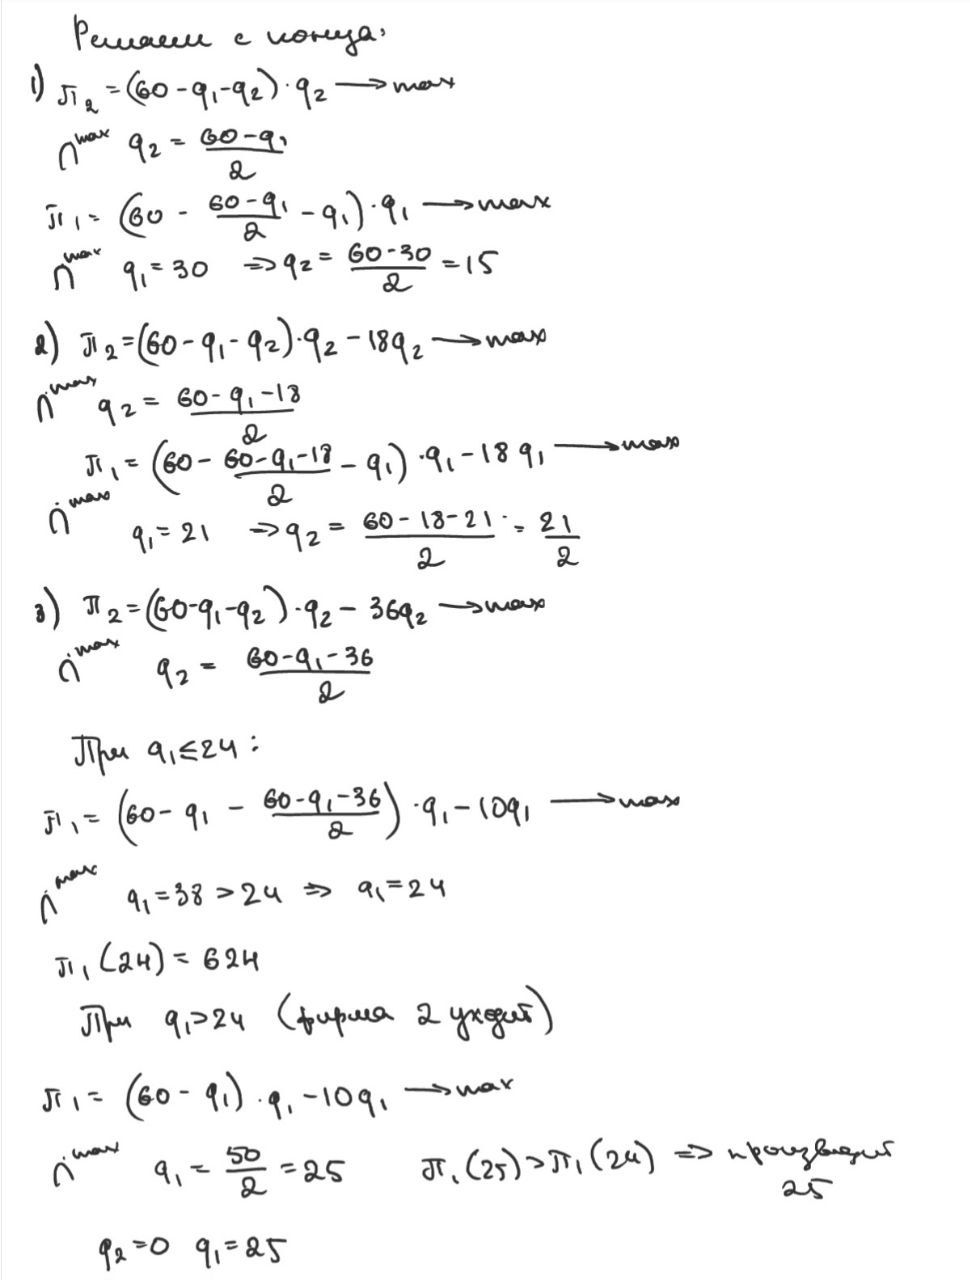 Решаем с конца:
1) π₂ = (60 - q₁ - q₂) · q₂ → max
∩ᵐᵃˣ q₂ = (60 - q₁)/2
π₁ = (60 - (60 - q₁)/2 - q₁) · q₁ → max
∩ᵐᵃˣ q₁ = 30 ⇒ q₂ = (60 - 30)/2 = 15
2) π₂ = (60 - q₁ - q₂) · q₂ - 18q₂ → max
∩ᵐᵃˣ q₂ = (60 - q₁ - 18)/2
π₁ = (60 - (60 - q₁ - 18)/2 - q₁) · q₁ - 18q₁ → max
∩ᵐᵃˣ q₁ = 21 ⇒ q₂ = (60 - 18 - 21)/2 = 21/2
3) π₂ = (60 - q₁ - q₂) · q₂ - 36q₂ → max
∩ᵐᵃˣ q₂ = (60 - q₁ - 36)/2
При q₁ ≤ 24:
π₁ = (60 - q₁ - (60 - q₁ - 36)/2) · q₁ - 10q₁ → max
∩ᵐᵃˣ q₁ = 38 > 24 ⇒ q₁ = 24
π₁(24) = 624
При q₁ > 24 (фирма 2 уходит)
π₁ = (60 - q₁) · q₁ - 10q₁ → max
∩ᵐᵃˣ q₁ = 50/2 = 25 π₁(25) > π₁(24) ⇒ производит
25
q₂ = 0 q₁ = 25